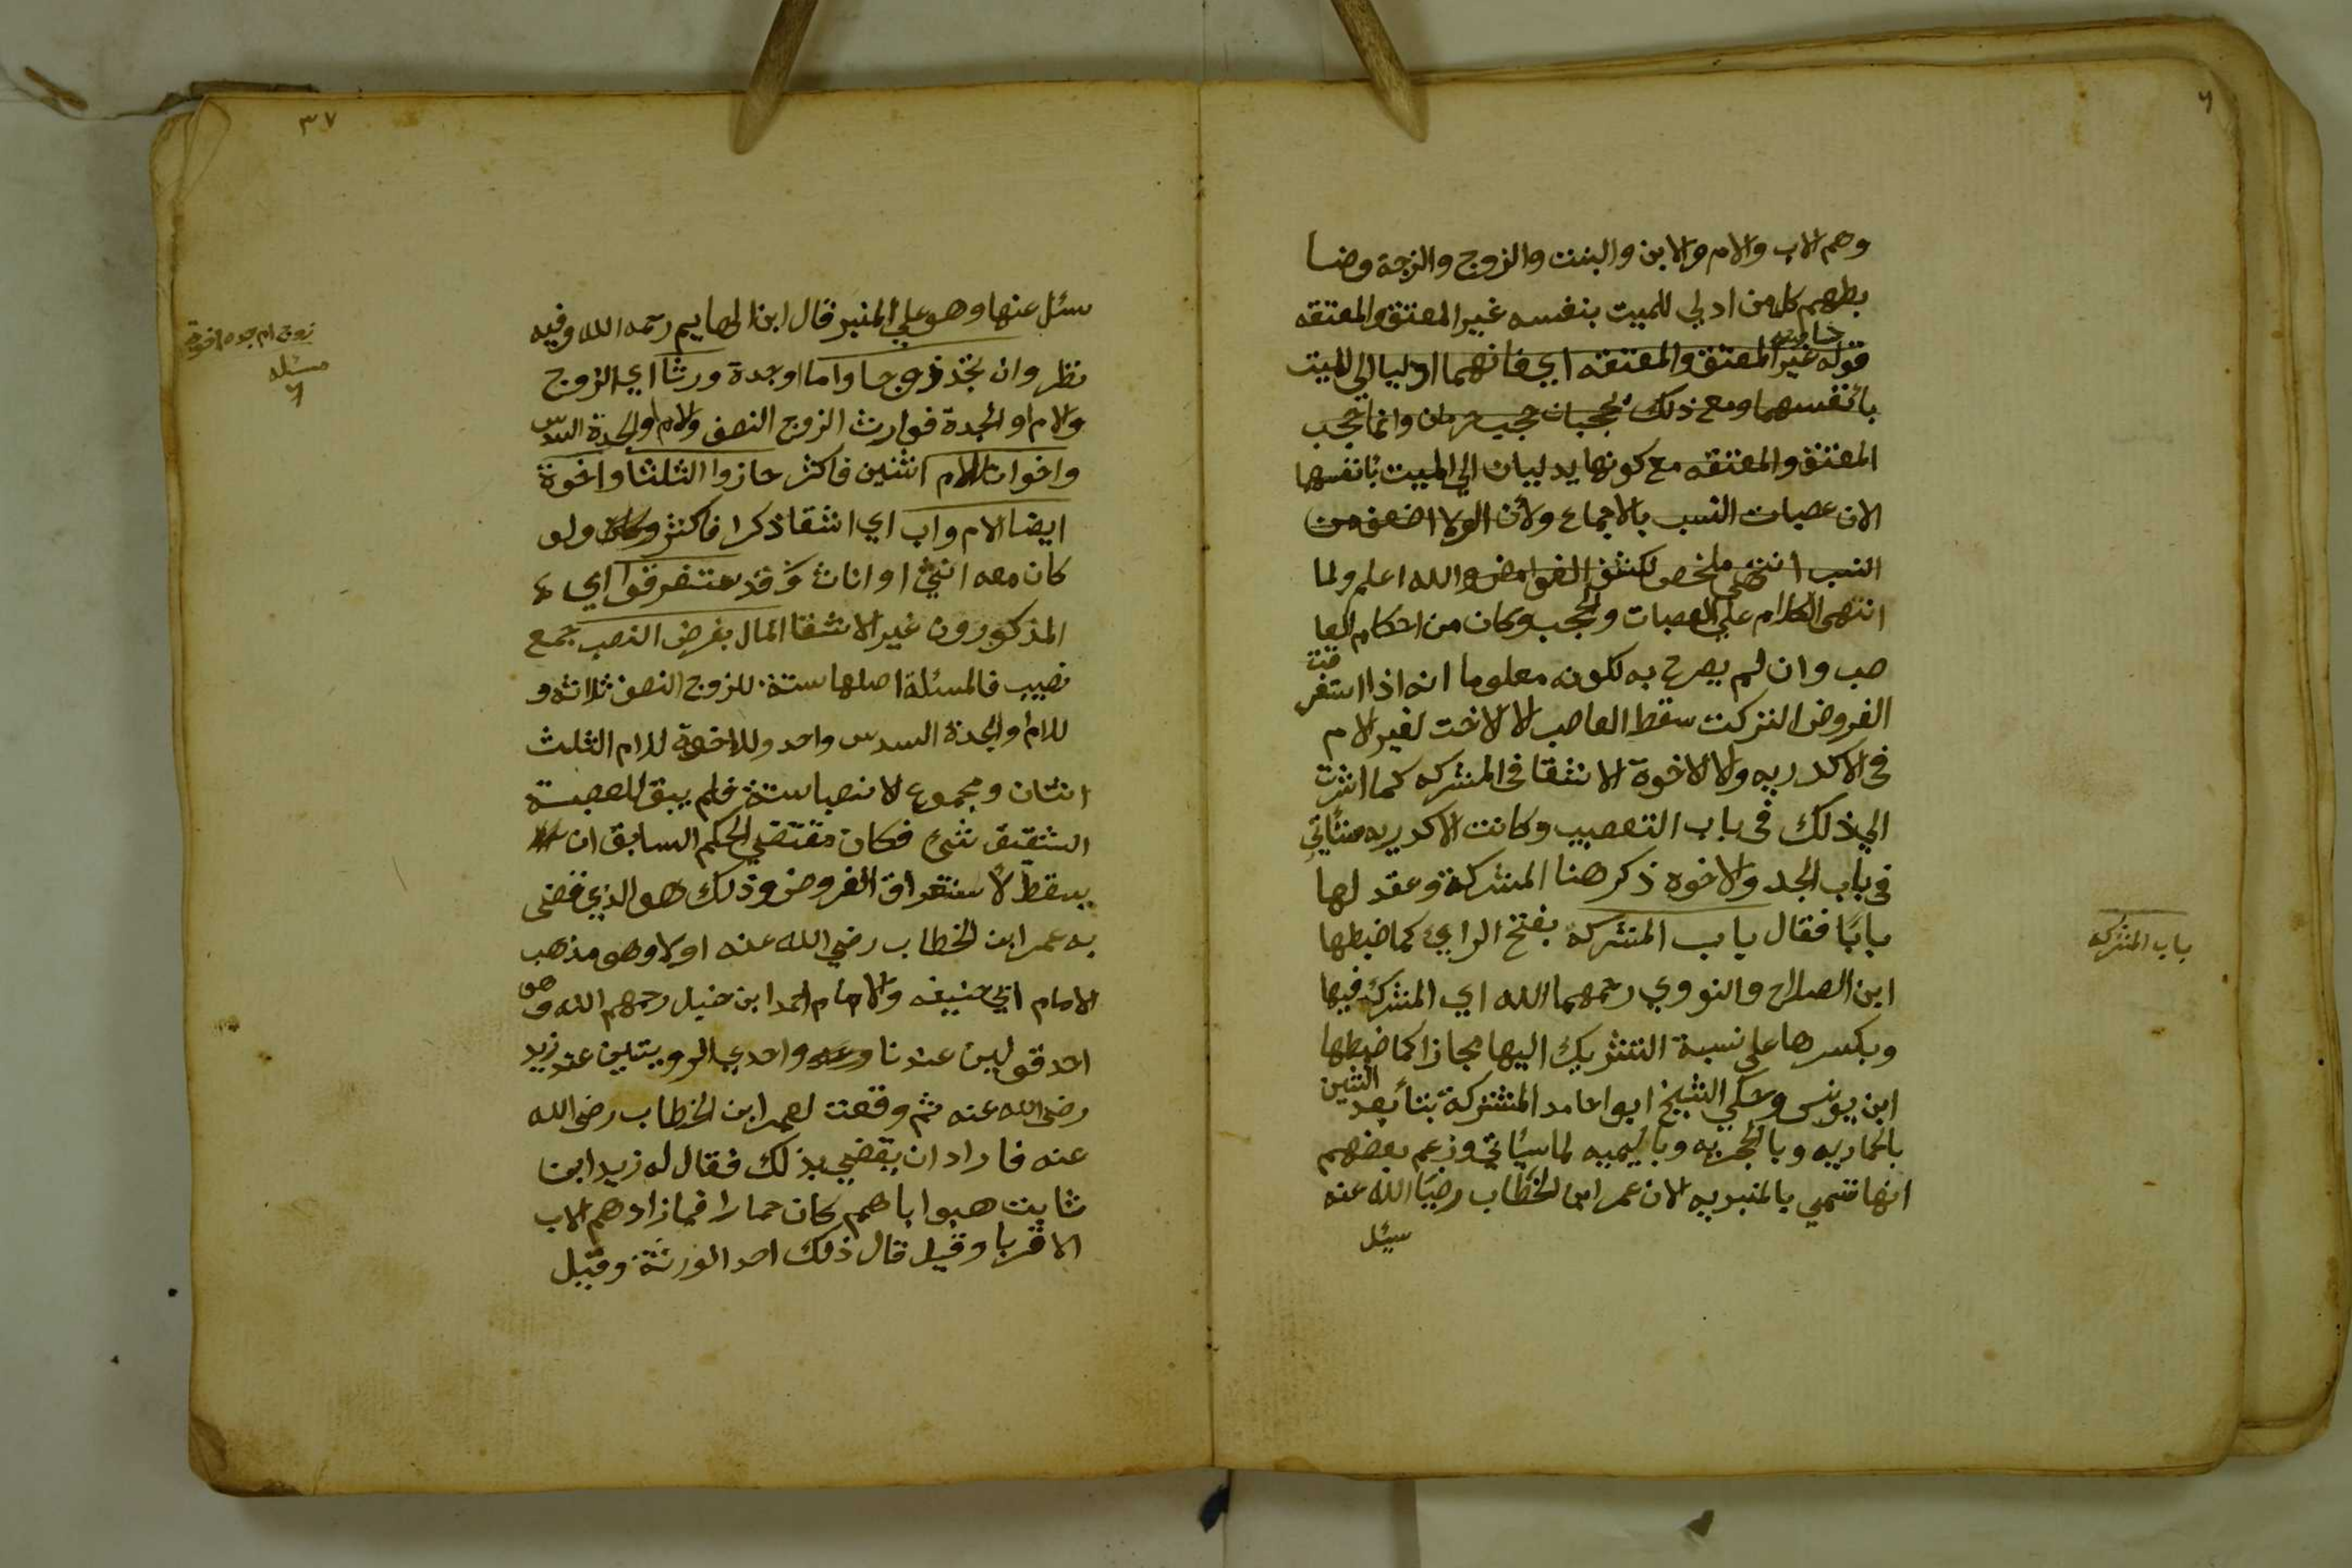 وهم الاب والام والابن والبنت والزوج والزوجة وضا
بطهم كل من ادلي للميت بنفسه غير المعتق والمعتقه
قوله غير المعتق والمعتقه اي فانهما ادليا الي الميت
بانفسهما ومع ذلك يحجبان حجب حرمان وانما حجب
المعتق والمعتقه مع كونهما يدليان الي الميت بانفسهما
لان عصبات النسب بالاجماع ولأن الولا اضعف من
النسب انتهى ملخص كشف الغوامض والله اعلم ولما
انتهى الكلام علي العصبات والحجب وكان من احكام العا
صب وان لم يصرح به لكونه معلوما انه اذا استغرقت
الفروض التركت سقط العاصب الا الاخت لغير الام
في الاكدريه والا الاخوة الاشقا في المشركه كما اشرت
الي ذلك في باب التعصيب وكانت الاكدريه ستأتي
في باب الجد والاخوه ذكر هنا المشركة وعقد لها
بابًا فقال باب المشركه بفتح الراي كما ضبطها
ابن الصلاح والنووي رحمهما الله اي المشرك فيها
وبكسرها علي نسبة التشريك اليها مجازا كما ضبطها
ابن يونس وحكي الشيخ ابوا حامد المشتركة بتا بعد الشين
بالحماريه وبالحجريه وباليميه لما سيأتي وزعم بعضهم
انها تسمي بالمنبريه لان عمر ابن الخطاب رضي الله عنه
سئل
باب المشركه
٣٧
سئل عنها وهو علي المنبر قال ابن الهايم رحمه الله وفيه
نظر وان تجد زوجا واما او جدة ورثا اي الزوج
والام او الجدة فوارث الزوج النصف والام والجدة السدس
واخوات للام اثنين فاكثر حازوا الثلثا واخوة
ايضا لام واب اي اشقا ذكرا فاكثر ولو
كان معه انثي او اناث وقد استغرقوا اي
المذكورون غير الاشقا المال بفرض النصب جمع
نصيب فالمسئلة اصلها ستة للزوج النصف ثلاثه و
للام والجدة السدس واحد وللاخوة للام الثلث
اثنان ومجموع الانصبا ستة فلم يبق للعصبة
الشقيق شيء فكان مقتضي الحكم السابق ان
يسقط لاستغراق الفروض وذلك هو الذي قضى
به عمر ابن الخطاب رضي الله عنه اولا وهو مذهب
الامام ابي حنيفه والامام احمد ابن حنبل رحمهم الله وهو
احد قولين عندنا واحدي الرويتين عند زيد
رضى الله عنه ثم وقعت لعمر ابن الخطاب رضى الله
عنه فاراد ان يقضي بذلك فقال له زيد ابن
ثابت هبوا اباهم كان حمارا فما زادهم الاب
الا قربا وقيل قال ذلك احد الورثة وقيل
زوج ام جده اخوة
مسئله
٦